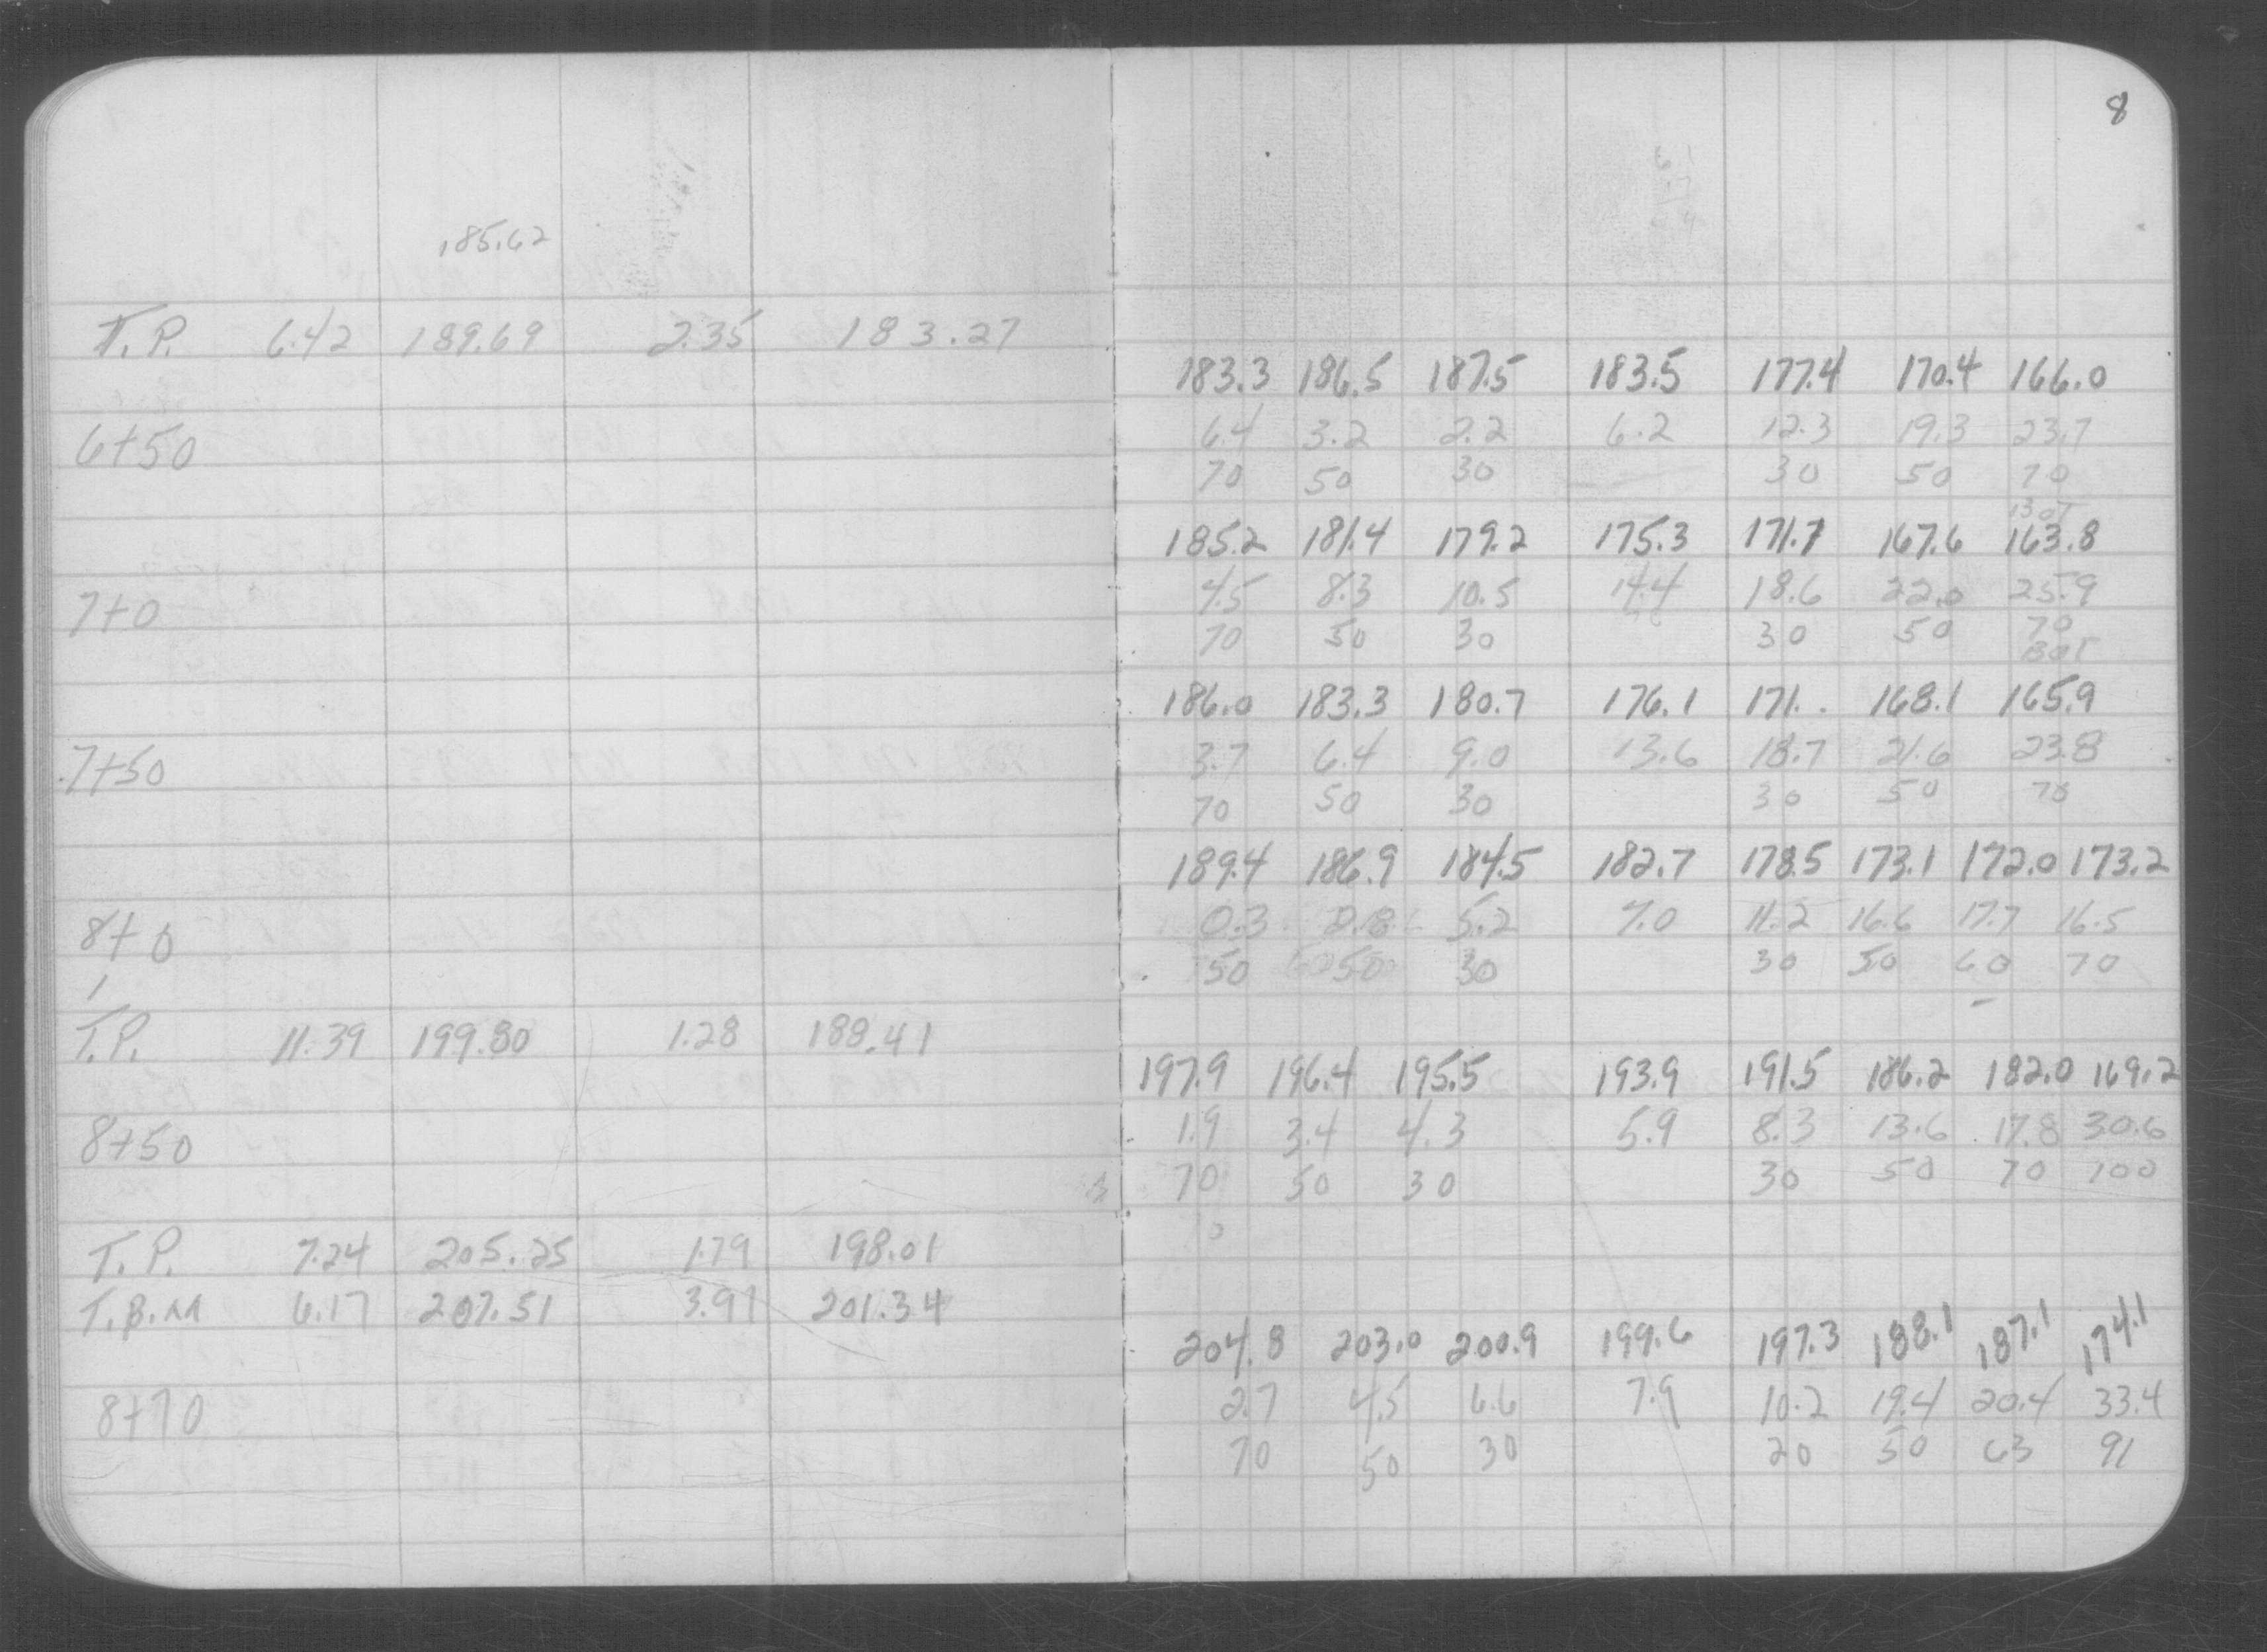 8
185.62
T.P. 6.42 189.69 2.35 183.27
183.3 186.5 187.5 183.5 177.4 170.4 166.0
6+50 6.4 3.2 2.2 6.2 12.3 19.3 23.7
70 50 30 30 50 70
Bot
185.2 181.4 179.2 175.3 171.1 167.6 163.8
7+0 4.5 8.3 10.5 14.4 18.6 22.0 25.9
70 50 30 30 50 70
Bot
186.0 183.3 180.7 176.1 171. . 168.1 165.9
7+50 3.7 6.4 9.0 13.6 18.7 21.6 23.8
70 50 30 30 50 70
189.4 186.9 184.5 182.7 178.5 173.1 172.0 173.2
8+0 0.3 5.2 7.0 11.2 16.6 17.7 16.5
50 50 30 30 50 60 70
T.P. 11.39 199.80 1.28 188.41
197.9 196.4 195.5 193.9 191.5 186.2 182.0 169.2
8+50 1.9 3.4 4.3 5.9 8.3 13.6 17.8 30.6
70 50 30 30 50 70 100
T.P. 7.24 205.25 1.79 198.01
T.B.M 6.17 207.51 3.91 201.34
204.8 203.0 200.9 199.6 197.3 188.1 187.1 174.1
8+70 2.7 4.5 6.6 7.9 10.2 19.4 20.4 33.4
70 50 30 20 50 63 91